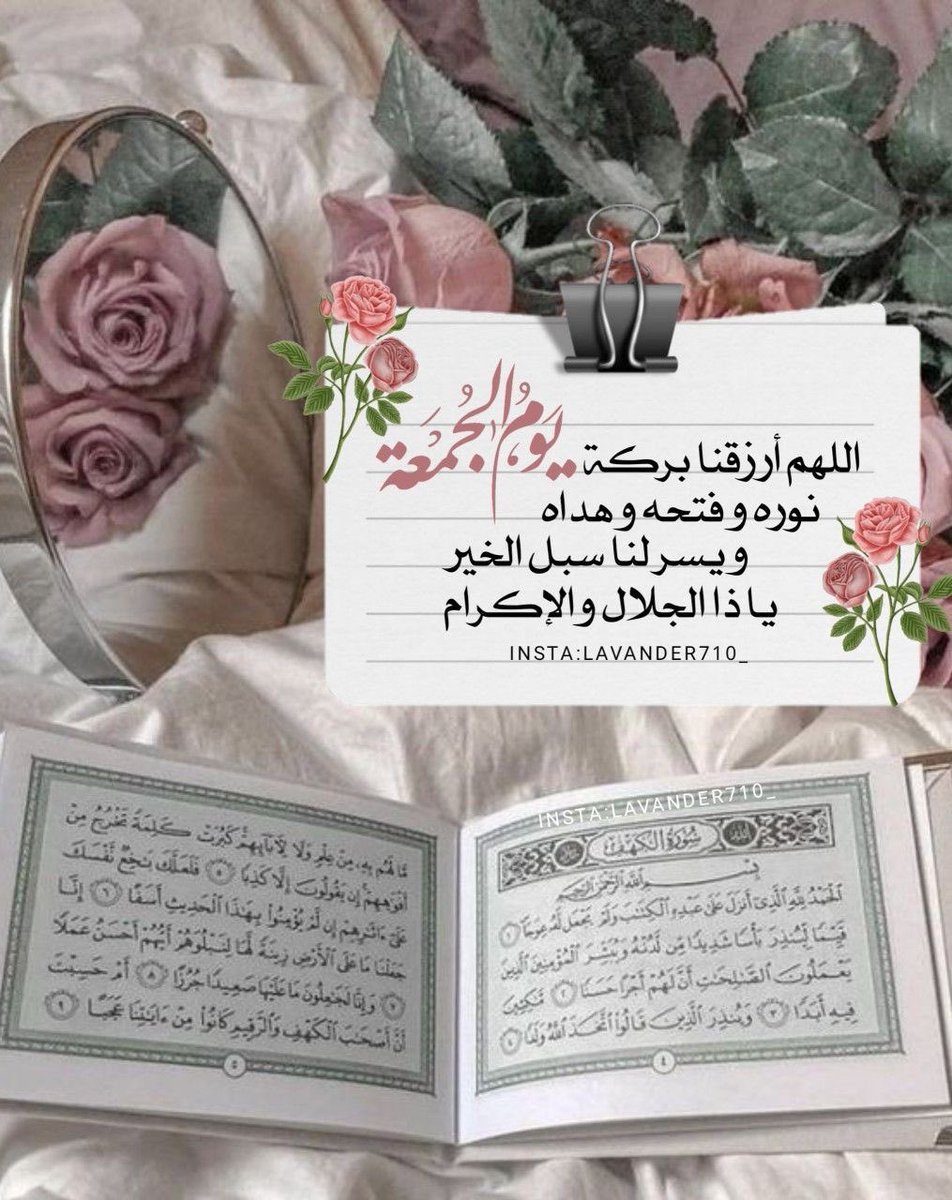 اللهم أرزقنا بركة يَومُ الجُمعَة
نوره و فتحه و هداه
و يسر لنا سبل الخير
يا ذا الجلال والإكرام
INSTA:LAVANDER710_
INSTA:LAVANDER710_
سُورَةُ الكَهْفِ
بِسْمِ ٱللَّهِ ٱلرَّحْمَٰنِ ٱلرَّحِيمِ
ٱلْحَمْدُ لِلَّهِ ٱلَّذِىٓ أَنزَلَ عَلَىٰ عَبْدِهِ ٱلْكِتَٰبَ وَلَمْ يَجْعَل لَّهُۥ عِوَجَا ۜ ١
قَيِّمًا لِّيُنذِرَ بَأْسًا شَدِيدًا مِّن لَّدُنْهُ وَيُبَشِّرَ ٱلْمُؤْمِنِينَ ٱلَّذِينَ
يَعْمَلُونَ ٱلصَّٰلِحَٰتِ أَنَّ لَهُمْ أَجْرًا حَسَنًا ٢ مَّٰكِثِينَ
فِيهِ أَبَدًا ٣ وَيُنذِرَ ٱلَّذِينَ قَالُوا۟ ٱتَّخَذَ ٱللَّهُ وَلَدًا ٤
٤
مَّا لَهُم بِهِۦ مِنْ عِلْمٍ وَلَا لِءَابَآئِهِمْ كَبُرَتْ كَلِمَةً تَخْرُجُ مِنْ
أَفْوَٰهِهِمْ إِن يَقُولُونَ إِلَّا كَذِبًا ٥ فَلَعَلَّكَ بَٰخِعٌ نَّفْسَكَ
عَلَىٰٓ ءَاثَٰرِهِمْ إِن لَّمْ يُؤْمِنُوا۟ بِهَٰذَا ٱلْحَدِيثِ أَسَفًا ٦ إِنَّا
جَعَلْنَا مَا عَلَى ٱلْأَرْضِ زِينَةً لَّهَا لِنَبْلُوَهُمْ أَيُّهُمْ أَحْسَنُ عَمَلًا
٧ وَإِنَّا لَجَٰعِلُونَ مَا عَلَيْهَا صَعِيدًا جُرُزًا ٨ أَمْ حَسِبْتَ
أَنَّ أَصْحَٰبَ ٱلْكَهْفِ وَٱلرَّقِيمِ كَانُوا۟ مِنْ ءَايَٰتِنَا عَجَبًا ٩
٥